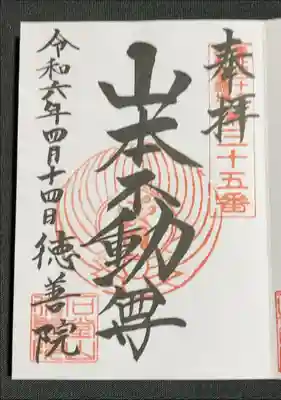 奉拝
山本不動尊
令和六年四月十四日 徳善院